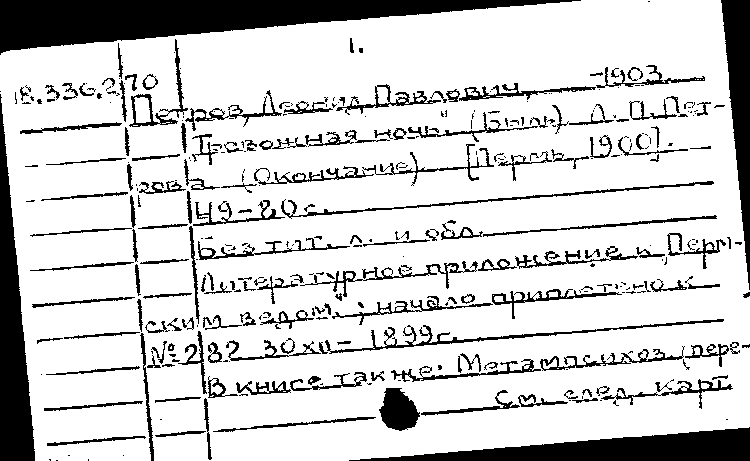 1.
18.336.2.70
Петров, Леонид Павлович, -1903
„Тревожная ночь." (Быль) Л. П. Пет-
рова. (Окончание). [Пермь, 1900].
49-80 с.
Без тит. л. и обл.
Литературное приложение к „Перм-
ским ведом."; начало приплетено к
№ 282 30 XII - 1899 г.
В книге также: Метампсихоз (пере-
См. след. карт.